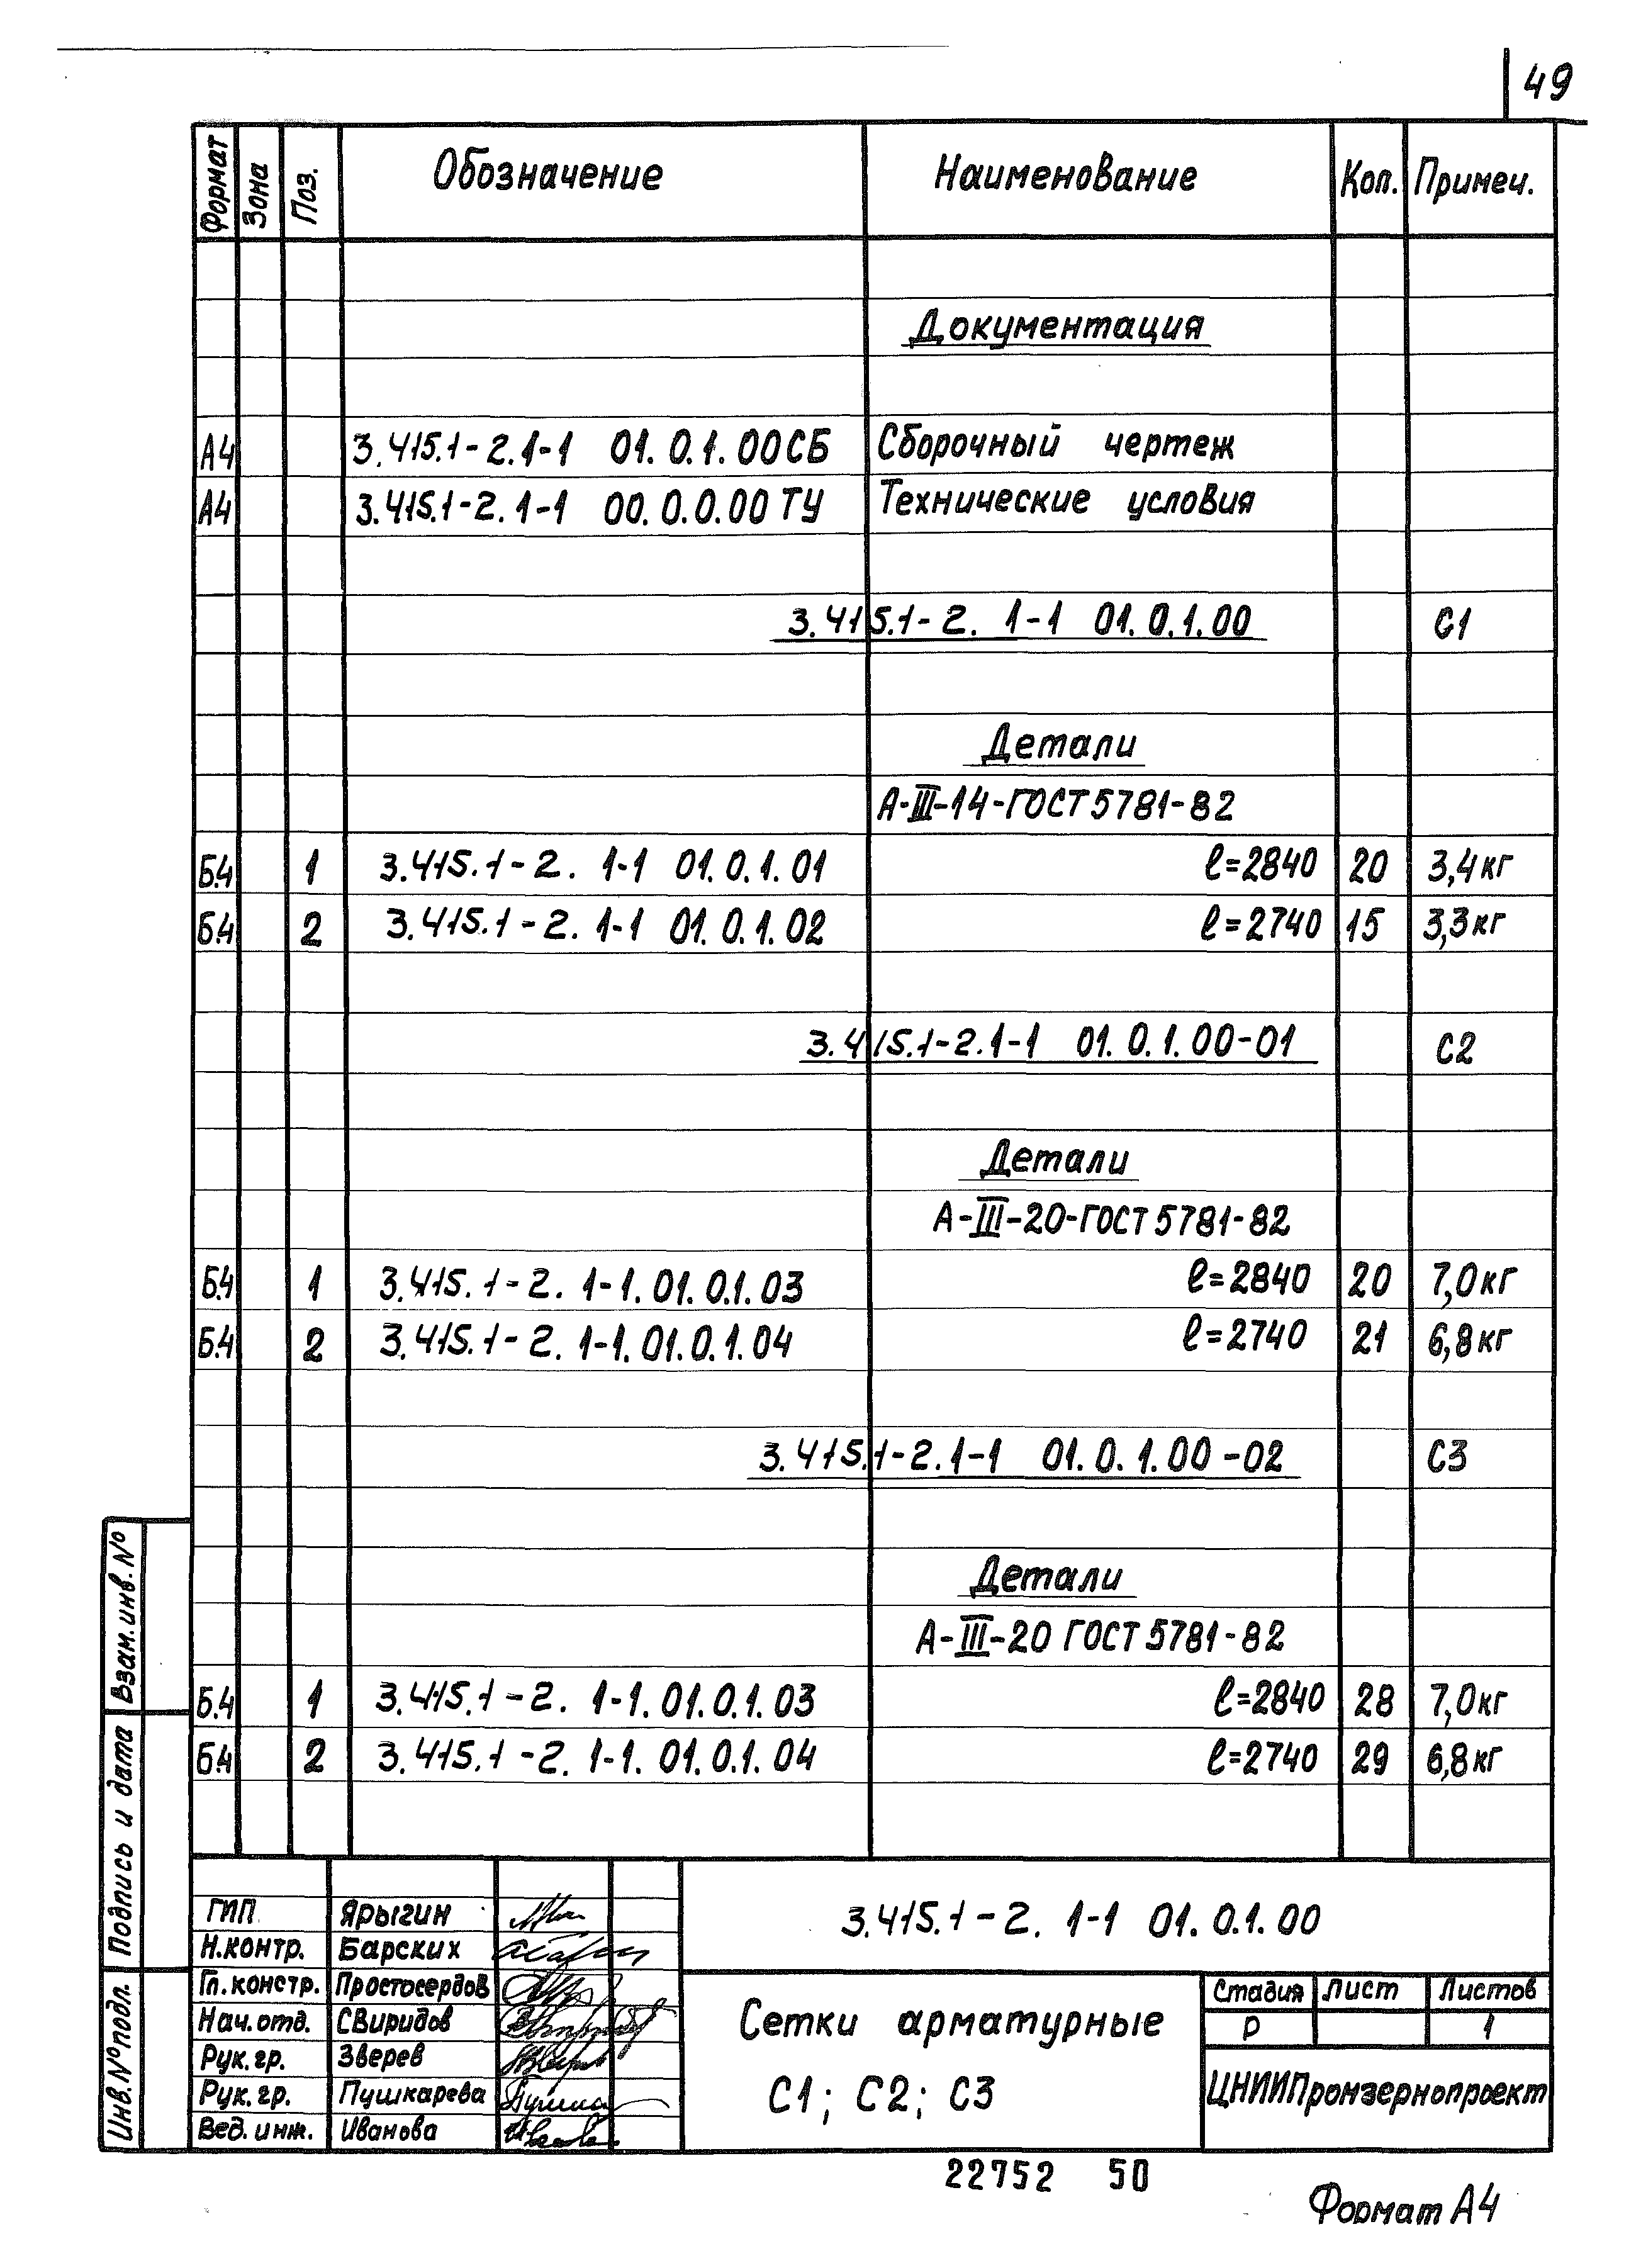 49
Формат Зона Поз. Обозначение Наименование Кол. Примеч.
Документация
А4 3.415.1-2.1-1 01.0.1.00СБ Сборочный чертеж
А4 3.415.1-2.1-1 00.0.0.00ТУ Технические условия
3.415.1-2. 1-1 01.0.1.00 С1
Детали
А-III-14-ГОСТ5781-82
Б.4 1 3.415.1-2. 1-1 01.0.1.01 ℓ=2840 20 3,4кг
Б.4 2 3.415.1-2. 1-1 01.0.1.02 ℓ=2740 15 3,3кг
3.415.1-2.1-1 01.0.1.00-01 С2
Детали
А-III-20-ГОСТ5781-82
Б.4 1 3.415.1-2. 1-1.01.0.1.03 ℓ=2840 20 7,0кг
Б.4 2 3.415.1-2. 1-1.01.0.1.04 ℓ=2740 21 6,8кг
3.415.1-2.1-1 01.0.1.00-02 С3
Детали
А-III-20 ГОСТ5781-82
Б.4 1 3.415.1-2. 1-1.01.0.1.03 ℓ=2840 28 7,0кг
Б.4 2 3.415.1-2. 1-1.01.0.1.04 ℓ=2740 29 6,8кг
Взам.инв.№
Подпись и дата
Инв.№подл.
ГИП Ярыгин
Н.контр. Барских
Гл.констр. Простосердов
Нач.отд. Свиридов
Рук.гр. Зверев
Рук.гр. Пушкарева
Вед.инж. Иванова
3.415.1-2. 1-1 01.0.1.00
Сетки арматурные
С1; С2; С3
Стадия Лист Листов
Р 1
ЦНИИПромзернопроект
22752 50
Формат А4